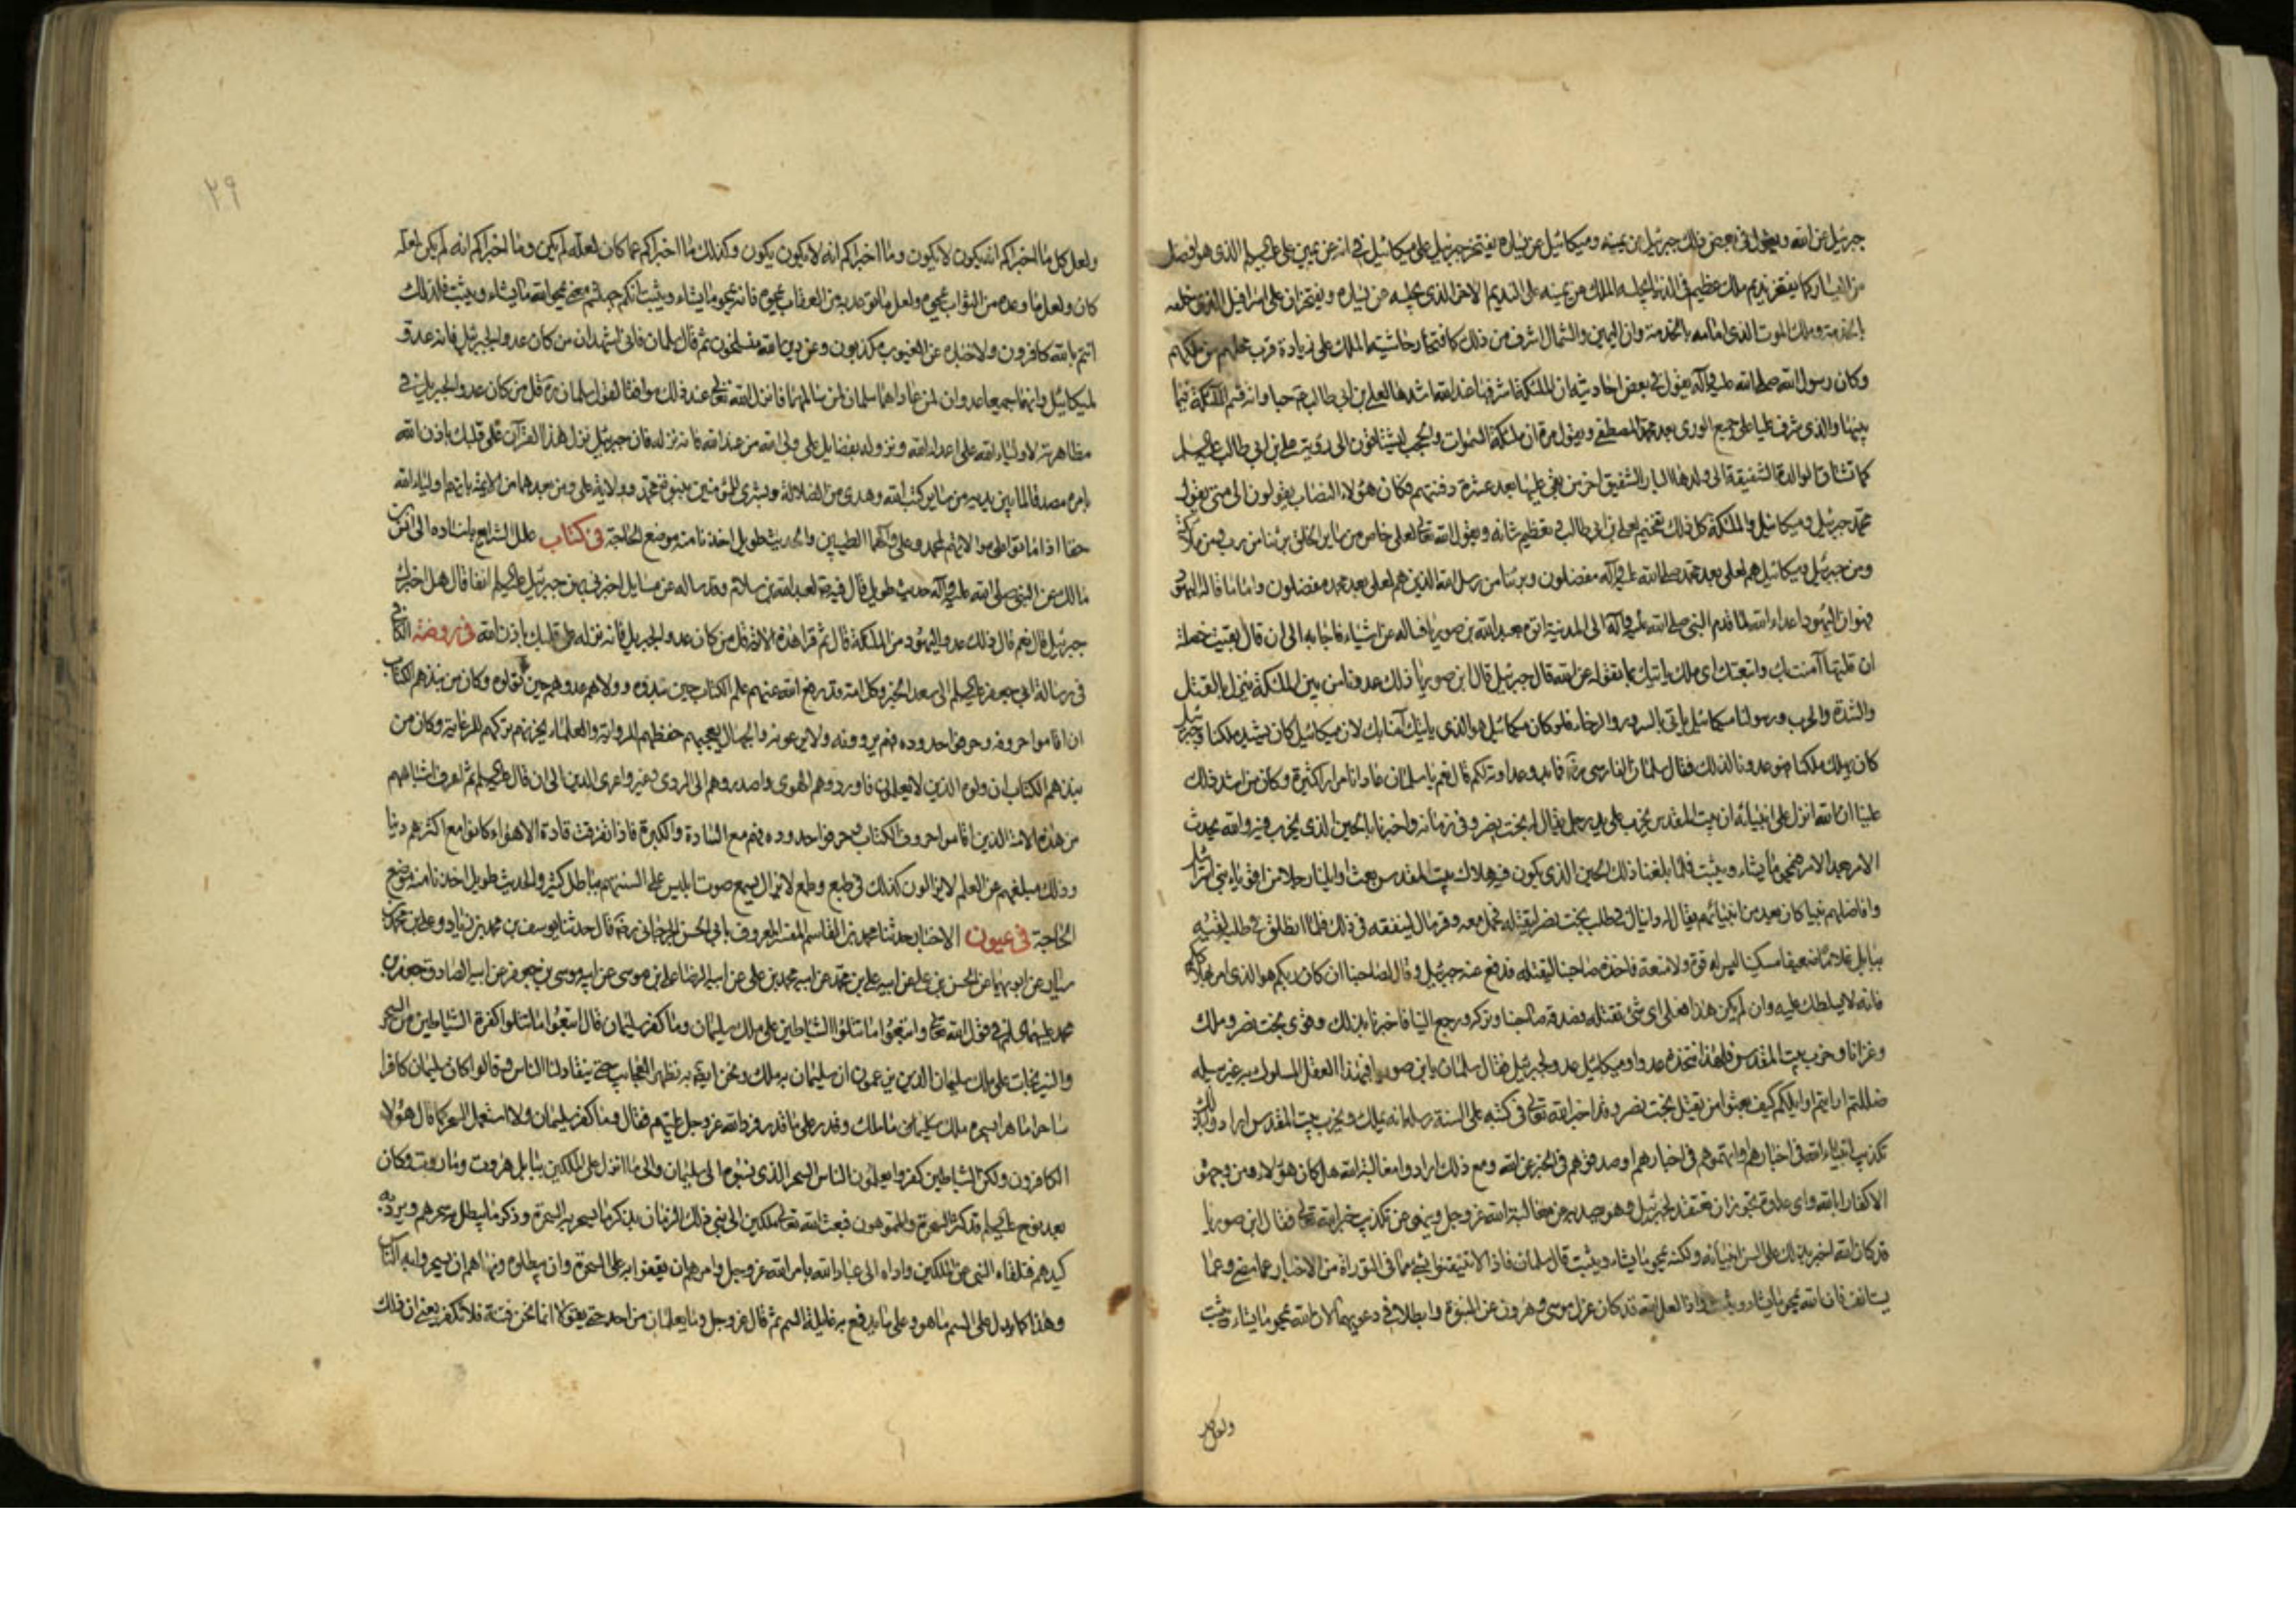 جبرئيل عن الله ويقول في بعض ذلك جبرئيل عن يمينه وميكائيل عن يساره يفتخر جبرئيل على ميكائيل في انه عن يمين على عليه السلم الذى هو افضل
من اليسار كما يفتخر نديم ملك عظيم في الدنيا يجلسه الملك عن يمينه على النديم الاخر الذى يجلسه عن يساره ويفتخران على اسرافيل الذى خلفه
بالخدمة وملك الموت الذى امامه بالخدمة وان اليمين والشمال اشرف من ذلك كافتخار حاشية الملك على زيادة قرب محلهم من ملكهم
وكان رسول الله صلى الله عليه وآله يقول في بعض احاديثه ان الملئكة اشرفها عند الله اشدها لعلي بن ابى طالب ع حبا وانه قسم الملئكة فيما
بينها والذى شرف عليا على جميع الورى بعد محمد المصطفى ويقول مرة ان ملئكة السموات والحجب ليشتاقون الى رؤية على بن ابى طالب عليه السلم
كما تشتاق الوالدة الشفيقة الى ولدها البار الشفيق اخر من بقى عليها بعد عشرة دفنتهم فكان هؤلاء النصاب يقولون الى متى يقول
محمد جبرئيل وميكائيل والملئكة كل ذلك تفخيم لعلى بن ابى طالب وتعظيم شانه ويقول الله تعالى لعلى خاص من ساير الخلق برئنا من رب ومن ملئكة
ومن جبرئيل وميكائيل هم لعلى بعد محمد صلى الله عليه وآله مفضلون وبرئنا من رسل الله الذين هم لعلى بعد محمد مفضلون واما ما قاله اليهود
فهو ان اليهود اعداء الله لما قدم النبى صلى الله عليه وآله الى المدينة اتوه بعبد الله بن صوريا فساله عن اشياء فاجابه الى ان قال بقيت خصلة
ان قلتها آمنت بك واتبعتك اى ملك ياتيك بما تقوله عن الله قال جبرئيل قال ابن صوريا ذلك عدونا من بين الملئكة ينزل بالقتل
والشدة والحرب ورسولنا ميكائيل ياتى بالسرور والرخاء فلو كان ميكائيل هو الذى ياتيك آمنا بك لان ميكائيل كان يشدد ملكنا وجبرئيل
كان يهلك ملكنا فهو عدونا لذلك فقال سلمان الفارسى ره فما بدو عداوته لكم قال نعم يا سلمان عادانا مرارا كثيرة وكان من اشد ذلك
علينا ان الله انزل على انبيائه ان بيت المقدس يخرب على يد رجل يقال له بخت نصر وفى زمانه واخبرنا بالحين الذى يخرب فيه والله يحدث
الامر بعد الامر فيمحو ما يشاء ويثبت فلما بلغنا ذلك الحين الذى يكون فيه هلاك بيت المقدس بعث اوائلنا رجلا من اقوياء بنى اسرائيل
وافاضلهم نبيا كان يعد من انبيائهم يقال له دانيال في طلب بخت نصر ليقتله فحمل معه وقر مال لينفقه في ذلك فلما انطلق في طلبه لقيه
ببابل غلاما ضعيفا مسكينا ليس له قوة ولا منعة فاخذه صاحبنا ليقتله فدفع عنه جبرئيل وقال لصاحبنا ان كان ربكم هو الذى امر بهلاككم
فانه لا يسلطك عليه وان لم يكن هذا فعلى اى شئ تقتله فصدقه صاحبنا وتركه ورجع الينا فاخبرنا بذلك وقوى بخت نصر وملك
وغزانا وخرب بيت المقدس فلهذا نتخذه عدوا وميكائيل عدو لجبرئيل فقال سلمان يا ابن صوريا فبهذا العقل المسلوك به غير سبيله
ضللتم ارايتم اوايلكم كيف بعثوا من يقتل بخت نصر وقد اخبر الله تعالى في كتبه على السنة رسله انه يملك ويخرب بيت المقدس ارادوا بذلك
تكذيب انبياء الله في اخبارهم او اتهموهم في اخبارهم او صدقوهم في الخبر عن الله ومع ذلك ارادوا مغالبة الله هل كان هؤلاء ومن وجهوه
الا كفارا بالله واى عداوة تجوز ان تعتقد لجبرئيل وهو يصد به عن مغالبة الله عز وجل وينهى عن تكذيب خبر الله تعالى فقال ابن صوريا
قد كان الله اخبر بذلك على السن انبيائه ولكنه يمحو ما يشاء ويثبت قال سلمان فاذا لا تتيقنوا بشئ مما في التوراة من الاخبار عما مضى وعما
يستانف فان الله يمحو ما يشاء ويثبت واذا لعل الله قد كان عزل موسى وهرون عن النبوة وابطلا في دعويهما لان الله يمحو ما يشاء ويثبت
ولعل كل
٢٩
ولعل كل ما اخبراكم انه يكون لا يكون وما اخبراكم انه لا يكون يكون وكذلك ما اخبراكم عما كان لعله لم يكن وما اخبراكم انه لم يكن لعله
كان ولعل ما وعده من الثواب يمحوه ولعل ما توعد به من العقاب يمحوه فانه يمحو ما يشاء ويثبت انكم جهلتم معنى يمحو الله ما يشاء ويثبت فلذلك
انتم بالله كافرون ولاخباره عن الغيوب مكذبون وعن دين الله منسلخون ثم قال سلمان فانى اشهد ان من كان عدوا لجبرئيل فانه عدو
لميكائيل وانهما جميعا عدوان لمن عاداهما سلمان لمن سالمهما فانزل الله تعالى عند ذلك موافقا لقول سلمان ره قل من كان عدوا لجبريل في
مظاهرته لاولياء الله على اعداء الله ونزوله بفضايل على ولى الله من عند الله فانه نزله فان جبرئيل نزل هذا القرآن على قلبك باذن الله
بامره مصدقا لما بين يديه من ساير كتب الله وهدى من الضلالة وبشرى للمؤمنين بنبوة محمد وولاية على ومن بعدهما من الائمة بانهم اولياء الله
حقا اذا ماتوا على موالاتهم لمحمد وعلى وآلهما الطيبين والحديث طويل اخذنا منه موضع الحاجة في كتاب علل الشرايع باسناده الى انس بن
مالك عن النبى صلى الله عليه وآله حديث طويل قال فيه لعبد الله بن سلام وقد ساله عن مسايل اخبرنى بهن جبرئيل عليه السلم انفا قال هل اخبرك
جبرئيل قال نعم قال ذلك عدو اليهود من الملئكة قال ثم قرا هذه الاية قل من كان عدوا لجبريل فانه نزله على قلبك باذن الله في روضة الكافى
في رسالة ابى جعفر عليه السلم الى سعد الخير وكل امة قد رفع الله عنهم علم الكتاب حين نبذوه وولاهم عدوهم حين تولوه وكان من نبذهم الكتاب
ان اقاموا حروفه وحرفوا حدوده فهم يروونه ولا يرعونه والجهال يعجبهم حفظهم للرواية والعلماء يحزنهم تركهم للرعاية وكان من
نبذهم الكتاب ان ولوه الذين لا يعلمون فاوردوهم الهوى واصدروهم الى الردى وغيروا عرى الدين الى ان قال عليه السلم ثم اعرف اشباههم
من هذه الامة الذين اقاموا حروف الكتاب وحرفوا حدوده فهم مع السادة والكبرة فاذا تفرقت قادة الاهواء كانوا مع اكثرهم دنيا
وذلك مبلغهم من العلم لا يزالون كذلك في طبع وطمع لا يزال يسمع صوت ابليس على السنتهم بباطل كثير والحديث طويل اخذنا منه موضع
الحاجة في عيون الاخبار حدثنا محمد بن القاسم المفسر المعروف بابى الحسن الجرجانى رضه قال حدثنا يوسف بن محمد بن زياد وعلى بن محمد بن
سيار عن ابويهما عن الحسن بن على عن ابيه على بن محمد عن ابيه محمد بن على عن ابيه الرضا على بن موسى عن ابيه موسى بن جعفر عن ابيه الصادق جعفر بن
محمد عليهم السلم في قول الله تعالى واتبعوا ما تتلوا الشياطين على ملك سليمان وما كفر سليمان قال اتبعوا ما تتلوا كفرة الشياطين من السحر
والنيرنجات على ملك سليمان الذين يزعمون ان سليمان به ملك ونحن ايضا به نظهر العجايب حتى ينقاد لنا الناس وقالوا كان سليمان كافرا
ساحرا ماهرا بسحره ملك سليمان ما ملك وقدر على ما قدر فرد الله عز وجل عليهم فقال وما كفر سليمان ولا استعمل السحر كما قال هؤلاء
الكافرون ولكن الشياطين كفروا يعلمون الناس السحر الذى نسبوه الى سليمان والى ما انزل على الملكين ببابل هروت وماروت وكان
بعد نوح عليه السلم قد كثر السحرة والمموهون فبعث الله تعالى ملكين الى نبى ذلك الزمان بذكر ما يسحر به السحرة وذكر ما يبطل به سحرهم ويرد به
كيدهم فتلقاه النبى من الملكين واداه الى عباد الله بامر الله عز وجل وامرهم ان يقفوا به على السحرة وان يبطلوه ونهاهم ان يسحروا به الناس
وهذا كما يدل على السم ما هو وعلى ما يدفع به غايلة السم ثم قال عز وجل وما يعلمان من احد حتى يقولا انما نحن فتنة فلا تكفر يعنى ان ذلك